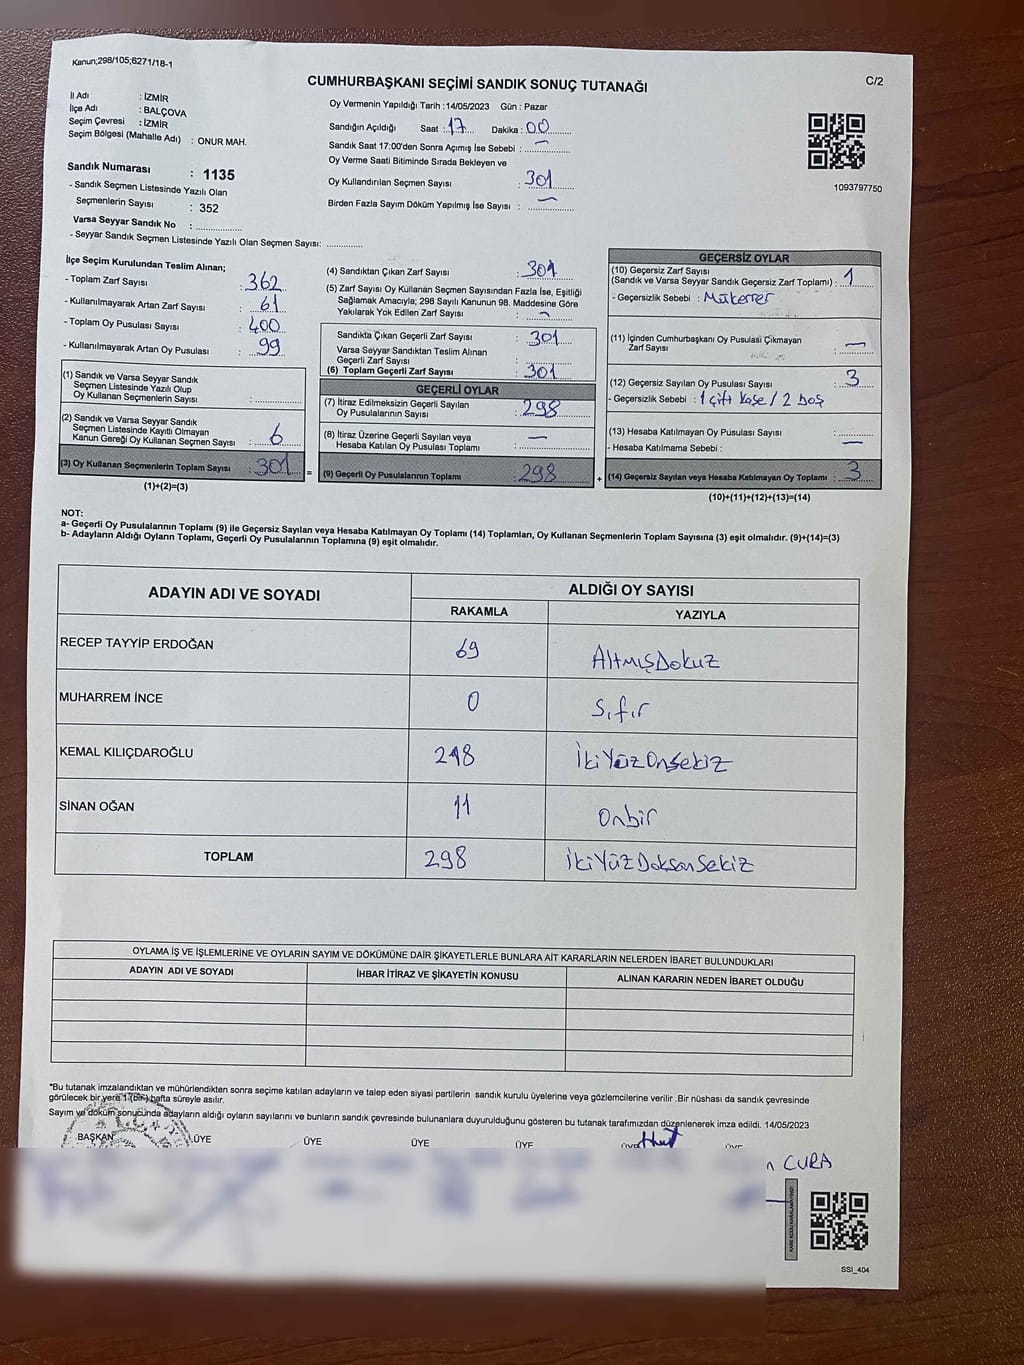 Kanun;298/105;6271/18-1
CUMHURBAŞKANI SEÇİMİ SANDIK SONUÇ TUTANAĞI
C/2
İl Adı : İZMİR
İlçe Adı : BALÇOVA
Seçim Çevresi : İZMİR
Seçim Bölgesi (Mahalle Adı) : ONUR MAH.
Sandık Numarası : 1135
- Sandık Seçmen Listesinde Yazılı Olan
Seçmenlerin Sayısı : 352
Varsa Seyyar Sandık No :
- Seyyar Sandık Seçmen Listesinde Yazılı Olan Seçmen Sayısı:
Oy Vermenin Yapıldığı Tarih :14/05/2023 Gün : Pazar
Sandığın Açıldığı Saat : 17 Dakika : 00
Sandık Saat 17:00'den Sonra Açımış İse Sebebi : —
Oy Verme Saati Bitiminde Sırada Bekleyen ve
Oy Kullandırılan Seçmen Sayısı : 301
Birden Fazla Sayım Döküm Yapılmış İse Sayısı : —
1093797750
İlçe Seçim Kurulundan Teslim Alınan;
- Toplam Zarf Sayısı : 362
- Kullanılmayarak Artan Zarf Sayısı : 61
- Toplam Oy Pusulası Sayısı : 400
- Kullanılmayarak Artan Oy Pusulası : 99
(1) Sandık ve Varsa Seyyar Sandık
Seçmen Listesinde Yazılı Olup
Oy Kullanan Seçmenlerin Sayısı :
(2) Sandık ve Varsa Seyyar Sandık
Seçmen Listesinde Kayıtlı Olmayan
Kanun Gereği Oy Kullanan Seçmen Sayısı : 6
(3) Oy Kullanan Seçmenlerin Toplam Sayısı : 301 =
(1)+(2)=(3)
(4) Sandıktan Çıkan Zarf Sayısı : 301
(5) Zarf Sayısı Oy Kulanan Seçmen Sayısından Fazla İse, Eşitliği
Sağlamak Amacıyla; 298 Sayılı Kanunun 98. Maddesine Göre
Yakılarak Yok Edilen Zarf Sayısı : —
Sandıkta Çıkan Geçerli Zarf Sayısı : 301
Varsa Seyyar Sandıktan Teslim Alınan
Geçerli Zarf Sayısı :
(6) Toplam Geçerli Zarf Sayısı : 301
GEÇERLİ OYLAR
(7) İtiraz Edilmeksizin Geçerli Sayılan
Oy Pusulalarının Sayısı : 298
(8) İtiraz Üzerine Geçerli Sayılan veya
Hesaba Katılan Oy Pusulası Toplamı : —
(9) Geçerli Oy Pusulalarının Toplamı : 298 +
GEÇERSİZ OYLAR
(10) Geçersiz Zarf Sayısı
(Sandık ve Varsa Seyyar Sandık Geçersiz Zarf Toplamı) : 1
- Geçersizlik Sebebi : Mükerrer
(11) İçinden Cumhurbaşkanı Oy Pusulası Çıkmayan
Zarf Sayısı : —
(12) Geçersiz Sayılan Oy Pusulası Sayısı : 3
- Geçersizlik Sebebi : 1 çift Kaşe / 2 boş
(13) Hesaba Katılmayan Oy Pusulası Sayısı :
- Hesaba Katılmama Sebebi : —
(14) Geçersiz Sayılan veya Hesaba Katılmayan Oy Toplamı : 3
(10)+(11)+(12)+(13)=(14)
NOT:
a- Geçerli Oy Pusulalarının Toplamı (9) ile Geçersiz Sayılan veya Hesaba Katılmayan Oy Toplamı (14) Toplamları, Oy Kullanan Seçmenlerin Toplam Sayısına (3) eşit olmalıdır. (9)+(14)=(3)
b- Adayların Aldığı Oyların Toplamı, Geçerli Oy Pusulalarının Toplamına (9) eşit olmalıdır.
ADAYIN ADI VE SOYADI
ALDIĞI OY SAYISI
RAKAMLA YAZIYLA
RECEP TAYYİP ERDOĞAN 69 AltmışDokuz
MUHARREM İNCE 0 Sıfır
KEMAL KILIÇDAROĞLU 218 İkiYüzOnSekiz
SİNAN OĞAN 11 Onbir
TOPLAM 298 İkiYüzDoksanSekiz
OYLAMA İŞ VE İŞLEMLERİNE VE OYLARIN SAYIM VE DÖKÜMÜNE DAİR ŞİKAYETLERLE BUNLARA AİT KARARLARIN NELERDEN İBARET BULUNDUKLARI
ADAYIN ADI VE SOYADI
İHBAR İTİRAZ VE ŞİKAYETİN KONUSU
ALINAN KARARIN NEDEN İBARET OLDUĞU
*Bu tutanak imzalandıktan ve mühürlendikten sonra seçime katılan adayların ve talep eden siyasi partilerin sandık kurulu üyelerine veya gözlemcilerine verilir .Bir nüshası da sandık çevresinde
görülecek bir yere 1 (bir) hafta süreyle asılır.
Sayım ve döküm sonucunda adayların aldığı oyların sayılarını ve bunların sandık çevresinde bulunanlara duyurulduğunu gösteren bu tutanak tarafımızdan düzenlenerek imza edildi. 14/05/2023
BAŞKAN ÜYE ÜYE ÜYE ÜYE
CURA
SSI_404